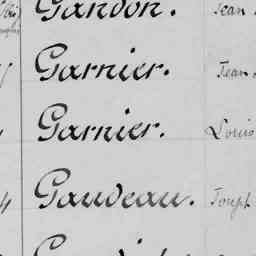 Gandon. Jean
Garnier. Jean
Garnier. Louis
4 Gaudeau. Joseph